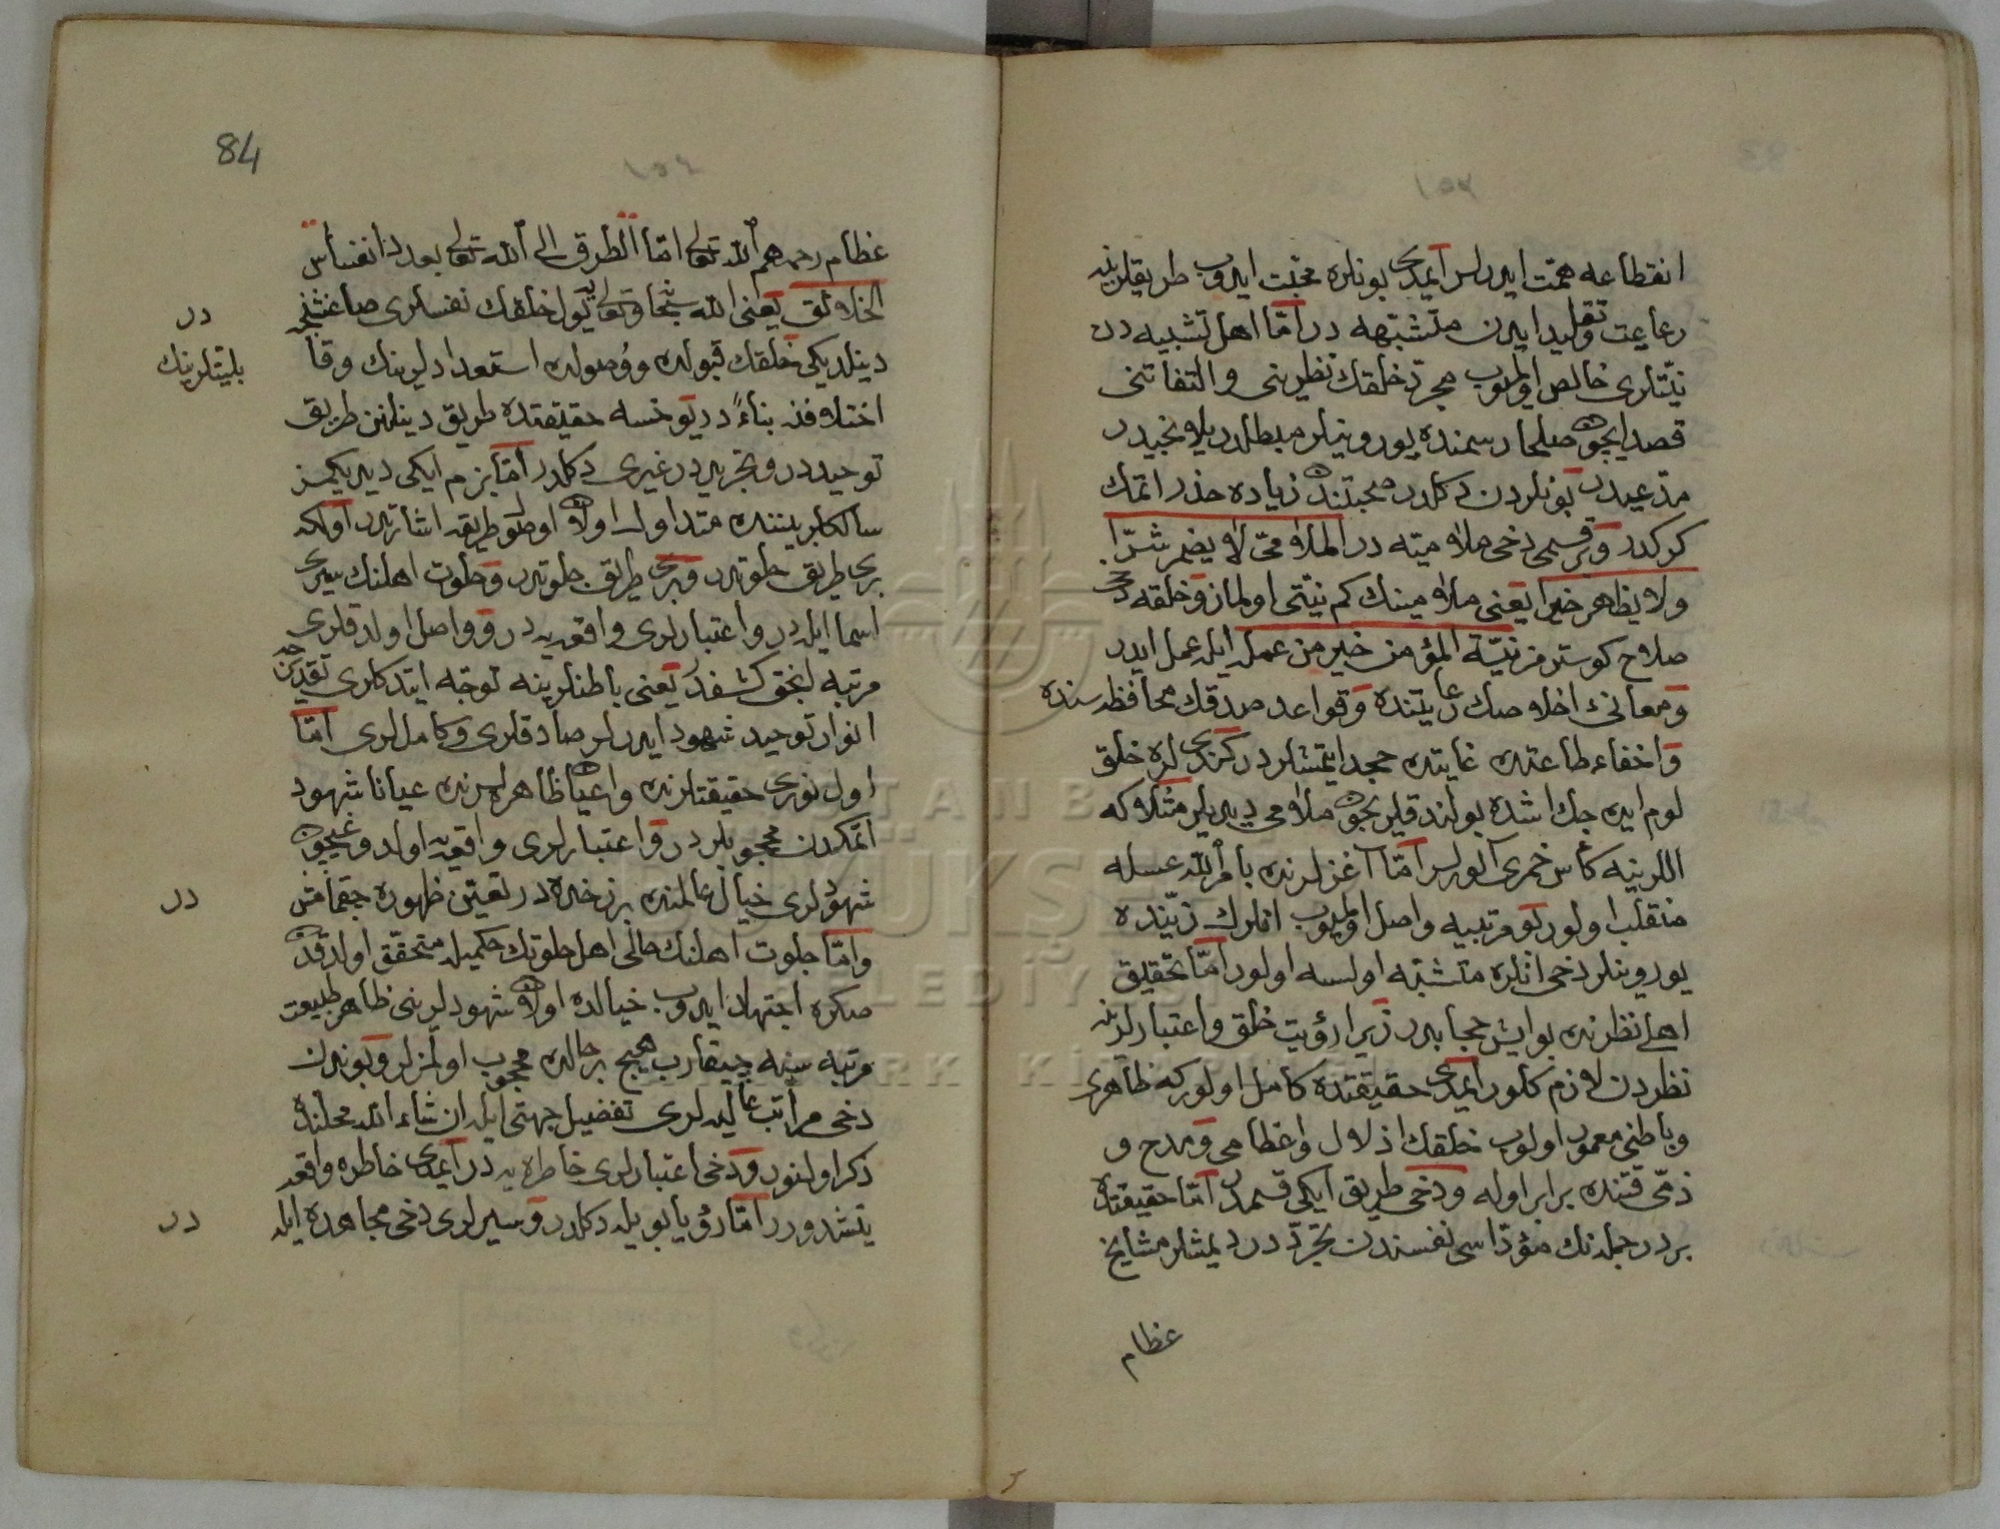 انقطاعه همت ایدرلر ایمدی بونلره محبت ایدوب طریقلرینه
رعایت وتقلید ایدن متشبهه در امّا اهل تشبیه دن
نیّتلری خالص اولمیوب مجرّد خلقك نظرینی والتفاتنی
قصد ایچون صلحا رسمنده یورویینلر مبطلدر
مدّعیدر بونلردن دكلدر صحبتندن زیاده حذر اتمك
كركدر وبر قسمی دخی ملامتیه در الملامتی لا یضمر شرّا
ولا یظهر خیرا یعنی ملامینك كم نیّتی اولماز وخلقه دخی
صلاح كوسترمز نیّة المؤمن خیر من عمله ایله عمل ایدر
ومعانیء اخلاصك رعایتنده وقواعد صدقك محافظه سنده
واخفاء طاعتده غایتده جهد ایتمشلردر كندیلره خلق
لوم ایده جك اشده بولندقلریچون ملامی دیدیلر مثلا كه
اللرینه كأس خمری آلورلر امّا آغزلرنده بامر الله عسله
منقلب اولور بو مرتبیه واصل اولمیوب انلرك زیّنده
یورویینلر دخی انلره متشبّه اولسه اولور امّا تحقیق
اهلی نظرنده بو ایش حجابدر زیرا رؤیت خلق واعتبارلرینه
نظردن لازم كلور ایمدی حقیقتده كامل اولور كه ظاهری
وباطنی معمور اولوب خلقك اذلال واعظامی ومدح و
ذمّی قتنده برابر اوله ودخی طریق ایكی قسمدر امّا حقیقتده
بردر جمله نك مؤدّاسی نفسندن تجرّد در دیمشلر مشایخ
عظام
84
عظام رحمهم الله تعالی امّا الطرق الی الله تعالی بعدد انفاس
الخلائق یعنی الله سبحانه وتعالی یه یول خلقك نفسلری صاغشنجه
در
دینلدیكی خلقك قبولده ووصولده استعدادلرینك وقا
بلیتلرینك
اختلافنه بناءً در یوخسه حقیقتده طریق دینلن طریق
توحیددر وتجریددر غیری دكلدر امّا بزم ایكی دیدیكمز
سالكلر بیننده متداول اولان اوصول طریقه اشارتدر اولكه
بری طریق خلوتدر وبری طریق جلوتدر وخلوت اهلنك سیری
اسما ایله در واعتبارلری واقعه یه در وواصل اولدقلری
مرتبه انجق كشفدر یعنی باطنلرینه توجّه ایتدكلری تقدیرجه
انوار توحید شهود ایدرلر صادقلری وكامللری امّا
اول نوری حقیقتلرنده واعیان ظاهره لرنده عیانا شهود
اتمكدن محجوبلردر واعتبارلری واقعه اولدوغیچون
شهودلری خیال عالمنده برزخده در تعیّن ظهوره چقمامش
در
وامّا جلوت اهلنك حالی اهل خلوتك حكمیله متحقّق اولدقدن
صكره اجتهاد ایدوب خیالده اولان شهودلرینی ظاهر طبیعت
مرتبه سنه چیقارب هیچ بر حالده محجوب اولمزلر وبوندن
دخی مراتب عالیه لری تفضیل جهتی ایله ان شاء الله محلنده
ذكر اولنور ودخی اعتبارلری خاطره یه در ایمدی خاطره واقعه
یتشدورر امّا رؤیا بویله دكلدر وسیرلری دخی مجاهده ایله
در